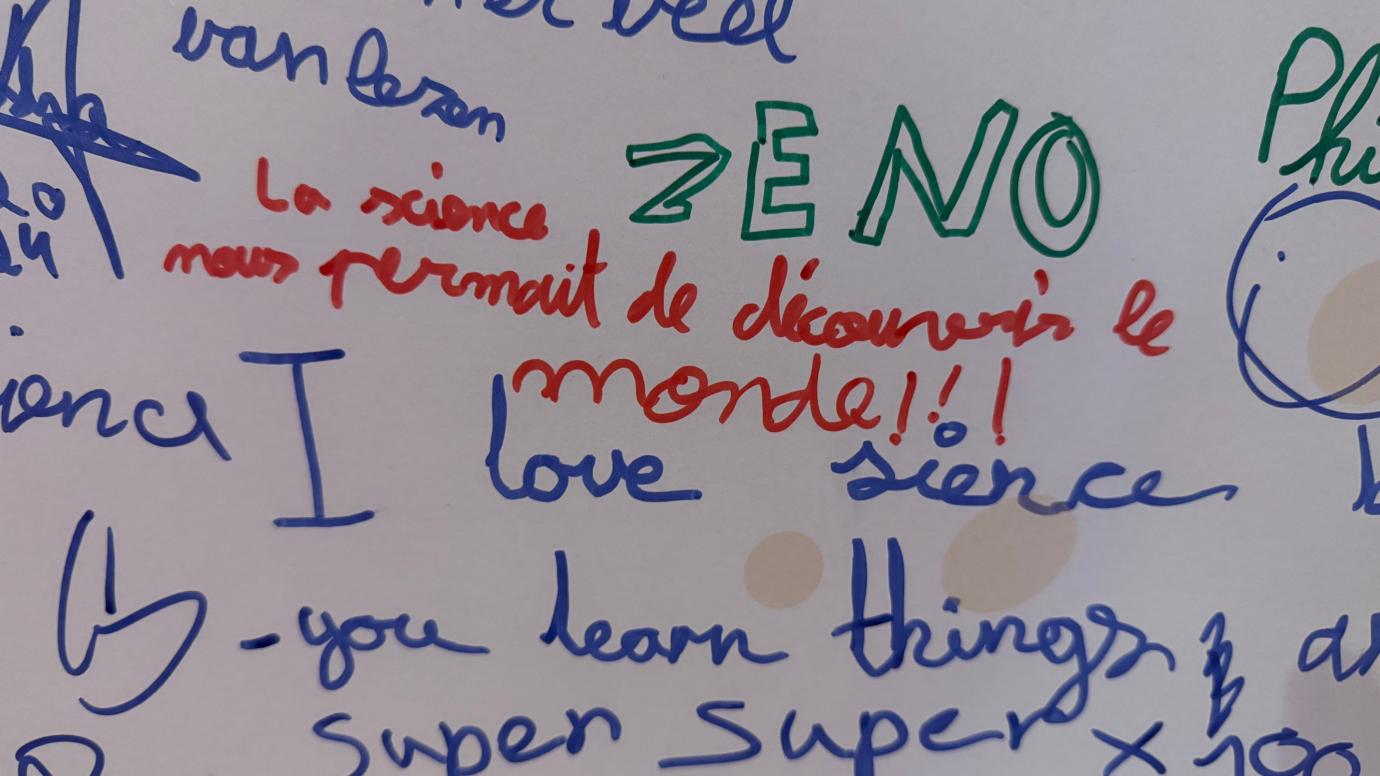 veel
van lezen
ZENO
La science
nous permait de découvrir le
monde!!!
20
24
I love sience
-you learn things
super super x 100